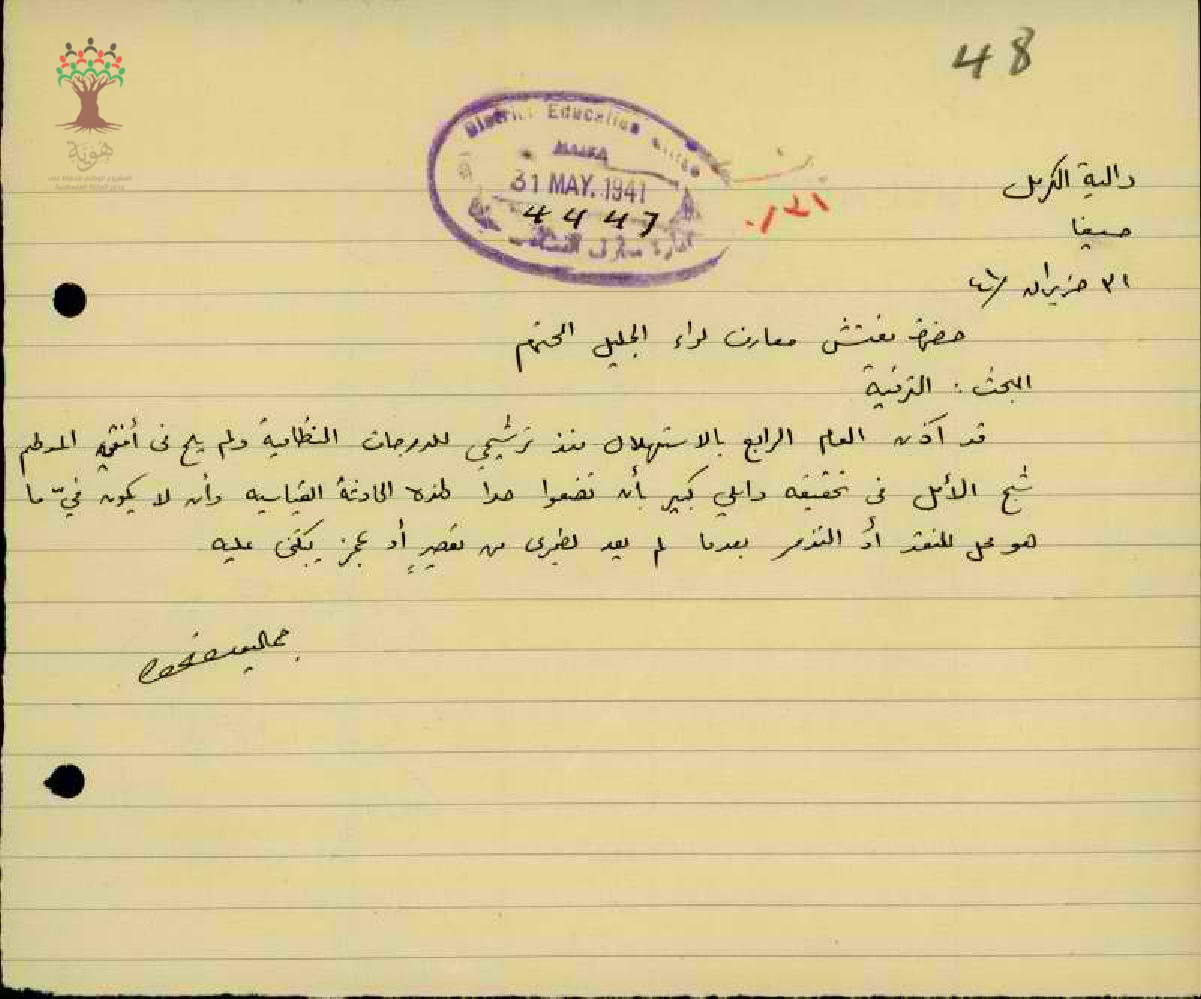 48
هوية
المشروع الوطني للحفاظ على
جذور العائلة الفلسطينية
District Education Office
HAIFA
31 MAY. 1941
4447
دالية الكرمل
حيفا
٣١ حزيران /٤١
حضرة مفتش معارف لواء الجليل المحترم
البحث : الترقية
قد آذن العام الرابع بالاستهلال منذ ترشيحي للدرجات النظامية ولم يلح في أفقي المدلهم
شبح الأمل في تحقيقه وأملي كبير بأن تضعوا حدا لهذه الحادثة القياسيه وأن لا يكون فيّ ما
هو محل للنقد أو التذمر بعدما لم يعد لغيري من تقصيرٍ أو عجز يتكئ عليه